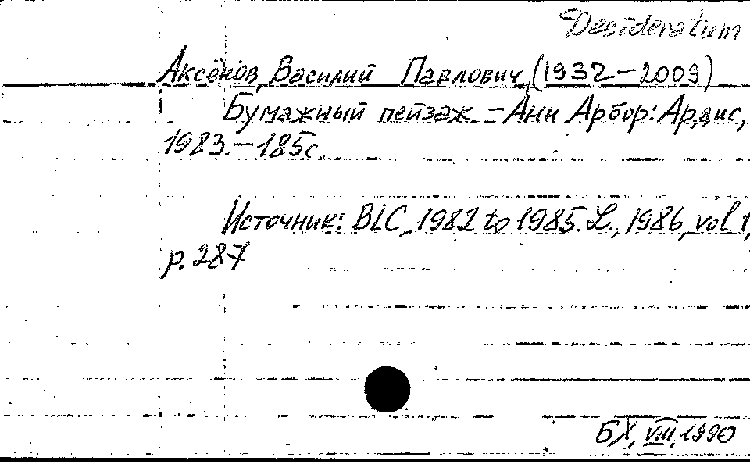 Desideratum
Аксёнов, Василий Павлович (1932-2009)
Бумажный пейзаж. - Анн Арбор: Ардис,
1983. - 185с.
Источник: BLC, 1982 to 1985. L., 1986, vol 1,
p. 287
БХ, VIII, 1990